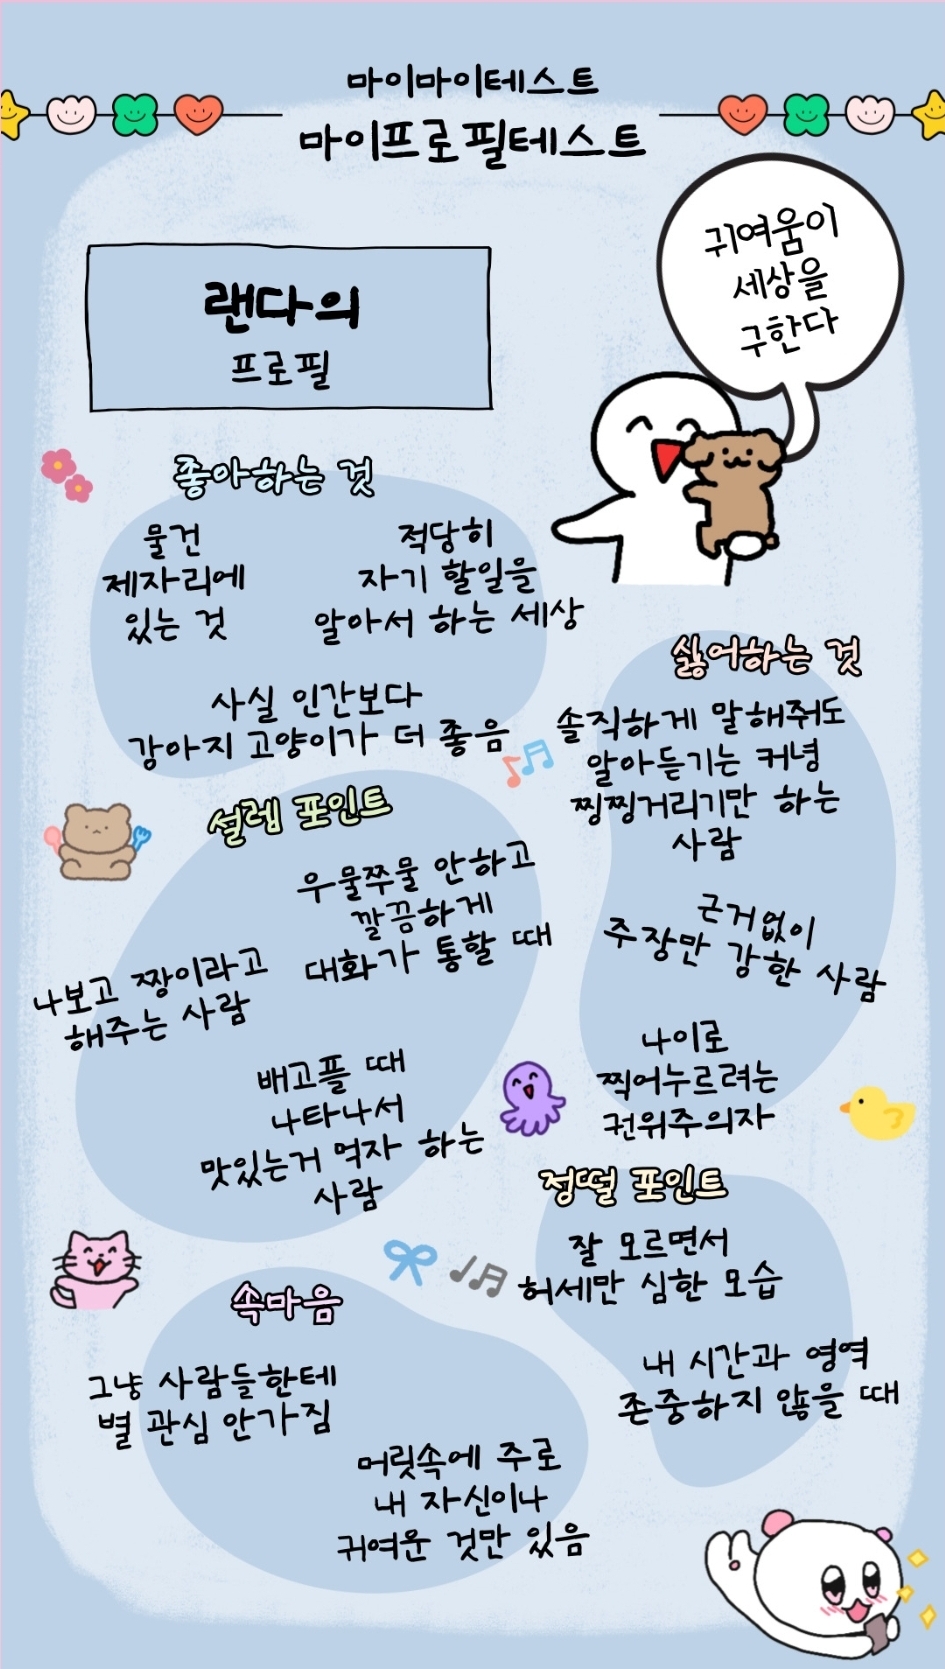 마이마이테스트
마이프로필테스트
귀여움이
세상을
구한다
랜다의
프로필
좋아하는 것
물건
제자리에
있는 것
적당히
자기 할일을
알아서 하는 세상
사실 인간보다
강아지 고양이가 더 좋음
싫어하는 것
솔직하게 말해줘도
알아듣기는 커녕
찡찡거리기만 하는
사람
근거없이
주장만 강한 사람
나이로
찍어누르려는
권위주의자
설렘 포인트
우물쭈물 안하고
깔끔하게
대화가 통할 때
나보고 짱이라고
해주는 사람
배고플 때
나타나서
맛있는거 먹자 하는
사람
정떨 포인트
잘 모르면서
허세만 심한 모습
내 시간과 영역
존중하지 않을 때
속마음
그냥 사람들한테
별 관심 안가짐
머릿속에 주로
내 자신이나
귀여운 것만 있음